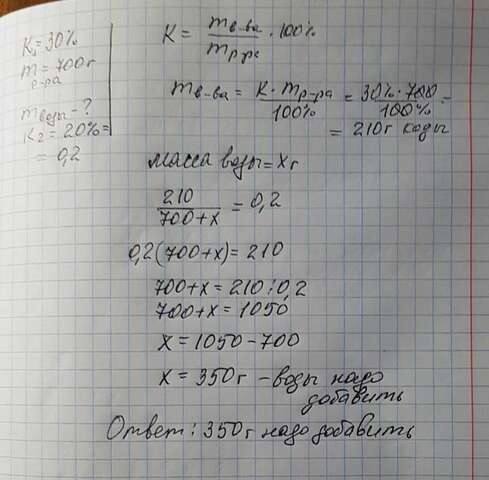 K₁ = 30%
m р-ра = 700 г
m воды - ?
K₂ = 20% =
= 0,2
K = m в-ва / m р-ра · 100%
m в-ва = K · m р-ра / 100% = 30% · 700 / 100% =
= 210 г соды
масса воды = x г
210 / 700 + x = 0,2
0,2 (700 + x) = 210
700 + x = 210 : 0,2
700 + x = 1050
x = 1050 - 700
x = 350 г - воды надо
добавить
Ответ: 350 г надо добавить